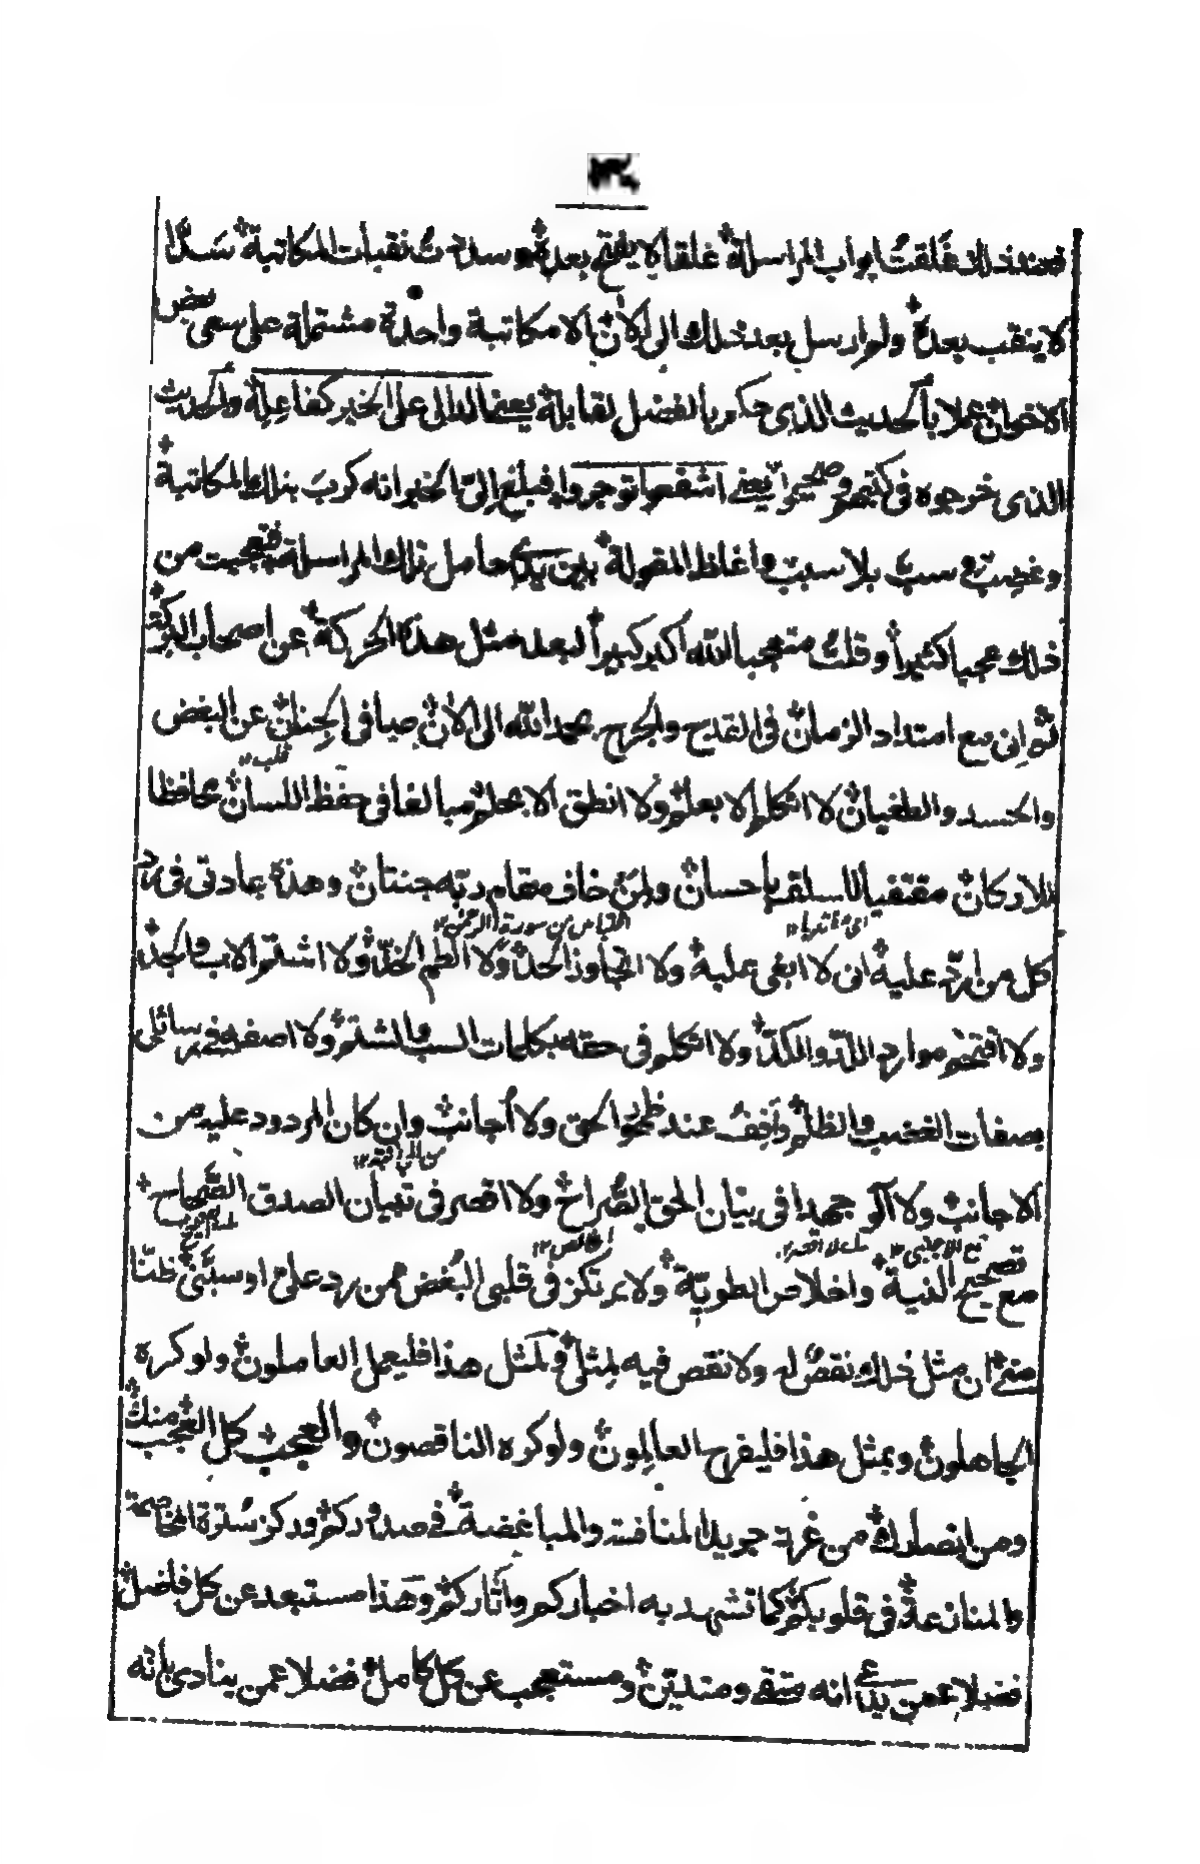 فعند ذلك غلقت ابواب المراسلة غلقا لا يفتح بعده وسدت نقبات المكاتبة سدًّا
لا ينقب بعدة ولم ارسل بعد ذلك الى الان الا مكاتبة واحدة مشتملة على سعى بعض
الاخوان عملا بالحديث الذى حكم بالفضل لقابلة يعنى الدال على الخير كفاعله والحديث
الذى خرجوه فى كتبهم وصححوا يعنى اشفعوا توجروا فبلغ الىّ الخبر انه كرب بذلك المكاتبة
وغضب وسب بلا سبب واغلظ المقولة بين يدى حامل ذلك المراسلة فتعجبت من
ذلك عجبا كثيرا وقلت متعجبا الله اكبر كبيرا لبعد مثل هذه الحركة عن اصحاب البركة
ثم انى مع امتداد الزمان فى القدح والجرح بحمد الله الى الان صافى الجنان عن البغض
قلب ١٢
والحسد والطغيان لا اتكلم الا بعلم ولا انطق الا بحلم مبالغا فى حفظ اللسان محافظا
للاركان مقتفيا للسلف باحسان ولمن خاف مقام ربه جنتان وهذه عادتى فى رد
اقتباس من سورة الرحمن ١٢
كل من ارد عليه ان لا ابغى عليه ولا اتجاوز الحد ولا الطم الخد ولا اشتم الاب والجد
ولا اقتحم موارد اللد والكد ولا اتكلم فى حقه بكلمات السب والشتم ولا اصفه فى رسائلى
بصفات الغضب والظلم واقف عند ظهور الحق ولا اجانب وان كان المردود عليه من
الاجانب ولا آلو جهدا فى بيان الحق الصراح ولا اقصر فى تبيان الصدق الصحاح
مع تصحيح النية واخلاص الطوية ولا يرتكز فى قلبى البغض ممن رد على او سبنى ظنا
منى ان مثل ذلك نقص له ولا نقص فيه لمثلى ولمثل هذا فليعمل العاملون ولو كره
الجاهلون وبمثل هذا فليفرح العالمون ولو كره الناقصون والعجب كل العجب منك
ومن انصارك من غرة جويد المنافسة والمباغضة فى صدوركم وركز سترة المخاصمة
والمنازعة فى قلوبكم كما تشهد به اخباركم وآثاركم وهذا مستبعد عن كل فاضل
فضلا عمن يدعى انه متقى ومتدين ومستعجب عن كل كامل فضلا عمن ينادى بانه